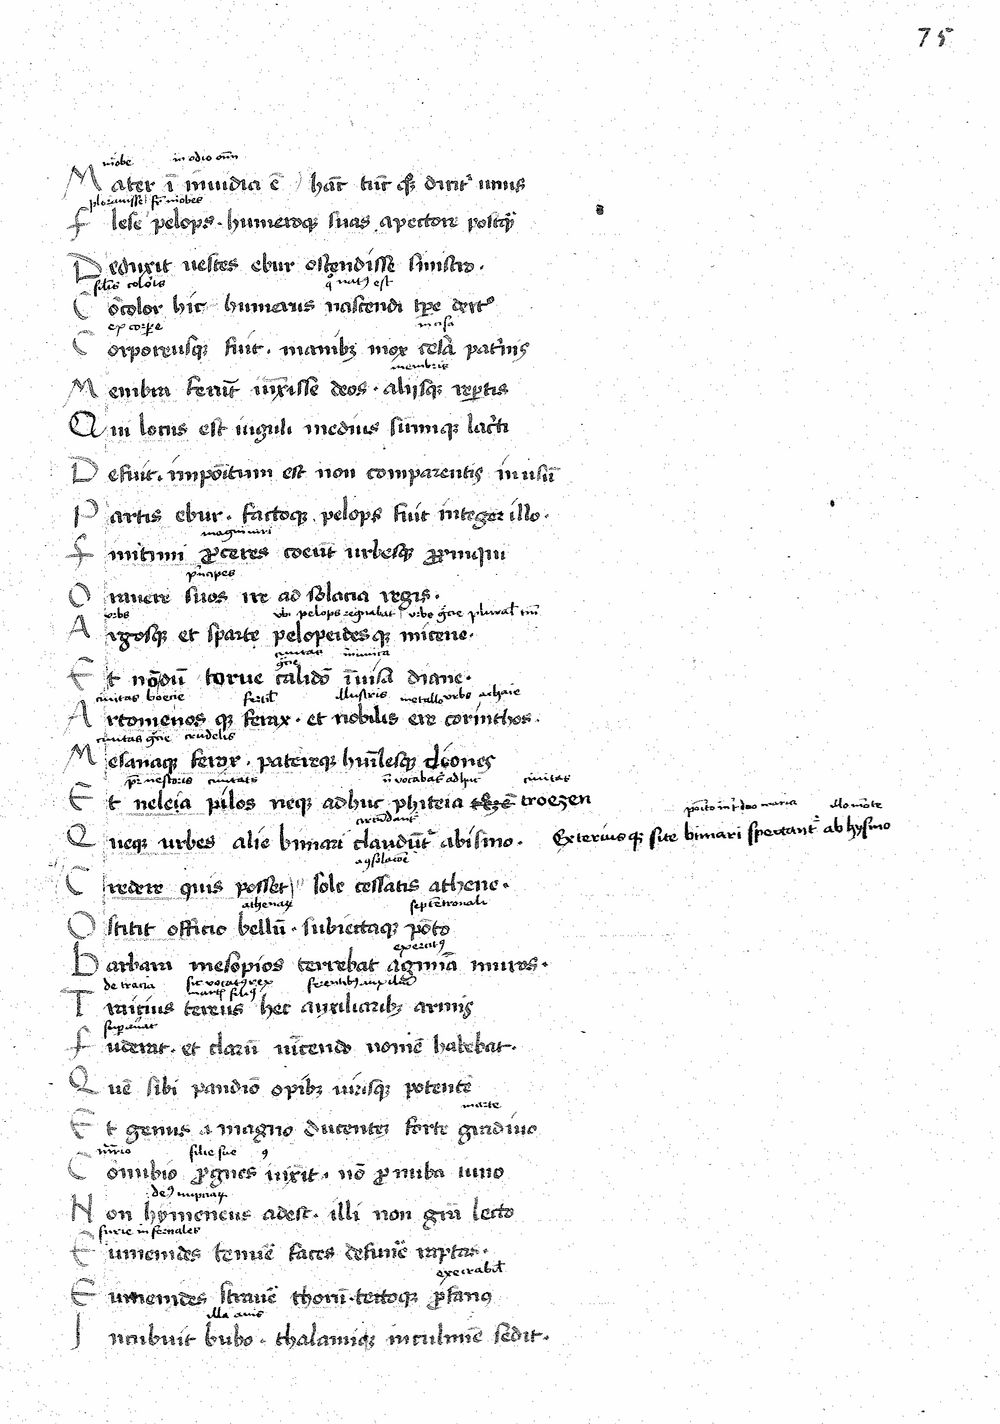 75
niobe in odio om̄
Mater ī inuidia ē hāc tūc qq; dicit᷑ unus
plorauisse fr̄ niobes
flese pelops. humeroq; suas a pectore postq̄
Deduxit uestes ebur ostendisse sinistro.
silīs colōis q̄ natꝰ est
Cōcolor hic humerus nascendi tp̄e dext᷑o
ex corꝑe incisa
Corporeusq; fuit. manibꝫ mox cesā pat᷑nis
membris
Membra ferūt iūxisse deos. aliisq; reꝑtis
Qui locus est iuguli medius sūmiq; lac᷑ti
Defuit. impōitum est non comparentis in usū
Partis ebur. factoq; pelops fuit integer illo.
magni uiri
finitimi ꝓceres coeūt urbesq; ꝓpinqui
pͥncipes
Orauere suos ire ad solacia regis.
urbs ubi pelops regnabat urbs gͬcie plural᷑
Argosq; et sparte pelopeidesq; micene.
ciuitas gͬcie inimica
Et nōdū torue calidō īuisa diane.
ciuitas boecie fertil᷑ illustris metallo urbs achaie
Artomenos q; ferax. et nobilis ere corinthos.
ciuitas gͬcie crudelis
Mesanaq; feror. patereq; humlesq; cleones
pr̄ nestoris ciuitatis n̄ vocabat᷑ adhuc ciuitas
Et neleia pilos neq; adhuc phiteia troezen
circūdant᷑
Queq; urbes alie bimari claudūt᷑ ab ismo.
pōito int᷑ duo maria illo mōte
Exteriusq; site bimari spectant᷑ ab hysmo
Credere quis posset sole cessatis athene.
athenaꝝ septētronali
Obstitit officio bellū. subiectaq; pōto
exercitꝰ
Barbara mesopios terrebat agmīa muros.
de tracia sic vocatꝰ rex martis filiꝰ
Traicius tereus hec auxiliaribꝫ armis
suꝑauerat
fuderat. et clarū uīcendo nomē habebat.
Quē sibi pandiō opibꝫ uirisq; potentē
marte
Et genus a magno ducentē forte gradiuo
filie sue
Cōnubio ꝓgnes iūxit. nō ꝓnuba iuno
deꝰ nuptiaꝝ
Non hymeneus adest. illi non gr̄a lecto
furie infernales
Eumenides tenuē faces de funē raptas.
execrabil᷑
Eumenides strauē thorū. tectoq; ꝓfanꝰ
illa auis
Incubuit bubo. thalamiq; in culmīe sedit.